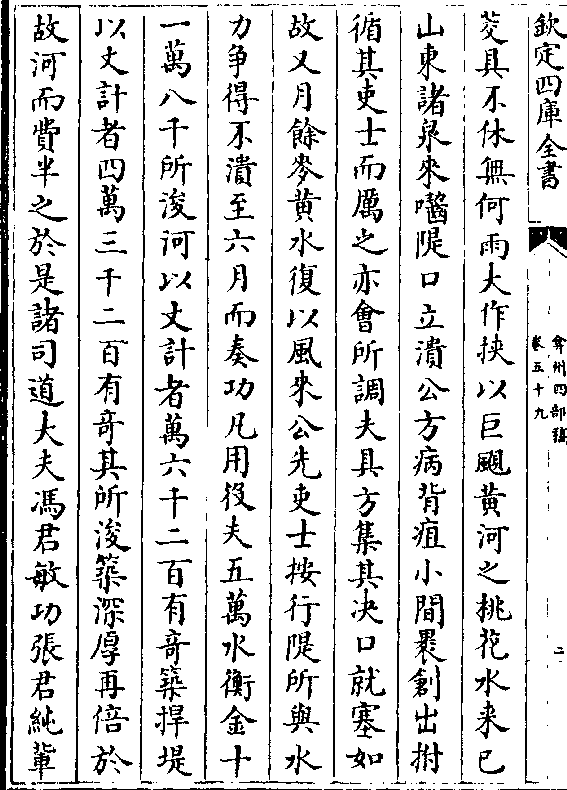 欽定四庫全書
弇州四部稿
卷五十九
二
茭具不休無何雨大作挾以巨颶黄河之桃花水来已
山東諸泉來嚙隄口立潰公方病背疽小間褁創出拊
循其吏士而厲之亦㑹所調夫具方集其决口就塞如
故又月餘麥黄水復以風來公先吏士按行隄所與水
力争得不潰至六月而奏功凡用役夫五萬水衡金十
一萬八千所浚河以丈計者萬六千二百有奇築捍堤
以丈計者四萬三千二百有奇其所浚築深厚再倍於
故河而費半之於是諸司道大夫馮君敏功張君純軰